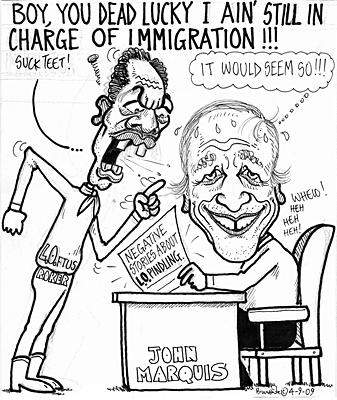 BOY, YOU DEAD LUCKY I AIN' STILL IN
CHARGE OF IMMIGRATION !!!
SUCK TEET!
IT WOULD SEEM SO!!!
WHEW!
HEH
HEH
HEH!
NEGATIVE
STORIES ABOUT
L.O. PINDLING.
LOFTUS
ROKER
JOHN
MARQUIS
©4-9-09